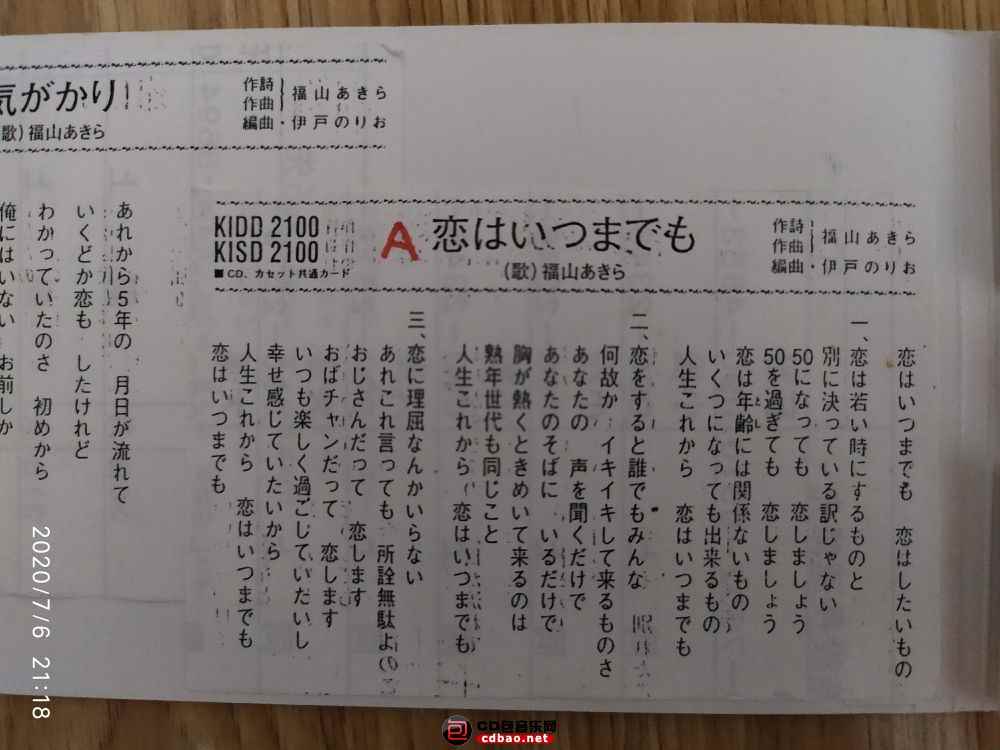 気がかり
作詩
作曲
福山あきら
編曲・伊戸のりお
歌)福山あきら
あれから5年の 月日が流れて
いくどか恋も したけれど
わかっていたのさ 初めから
俺にはいない お前しか
KIDD 2100
KISD 2100
■CD、カセット共通カード
A
恋はいつまでも
(歌)福山あきら
作詩
作曲
福山あきら
編曲・伊戸のりお
恋はいつまでも 恋はしたいもの
一、恋は若い時にするものと
別に決っている訳じゃない
50になっても 恋しましょう
50を過ぎても 恋しましょう
恋は年齢には関係ないもの
いくつになっても出来るもの
人生これから 恋はいつまでも
二、恋をすると誰でもみんな
何故か イキイキして来るものさ
あなたの 声を聞くだけで
あなたのそばに いるだけで
胸が熱くときめいて来るのは
熟年世代も同じこと
人生これから 恋はいつまでも
三、恋に理屈なんかいらない
あれこれ言っても 所詮無駄よ
おじさんだって 恋します
おばチャンだって 恋します
いつも楽しく過ごしていたいし
幸せ感じていたいから
人生これから 恋はいつまでも
恋はいつまでも
2020/7/6 21:18
CD包音乐网
cdbao.net